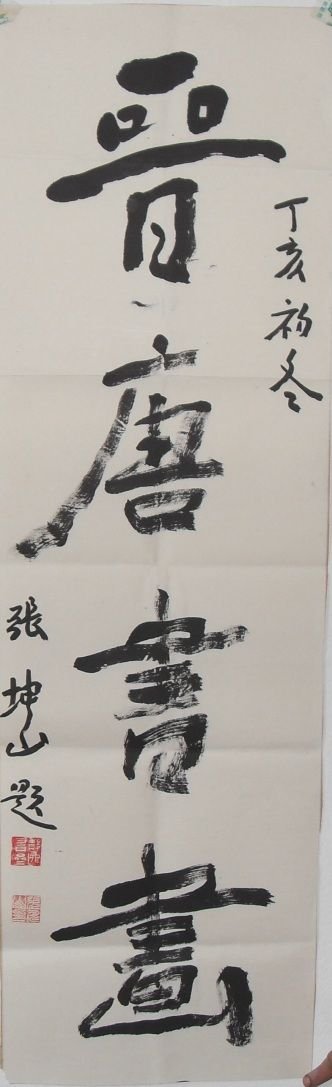 丁亥初冬
晉唐書畫
張坤山題